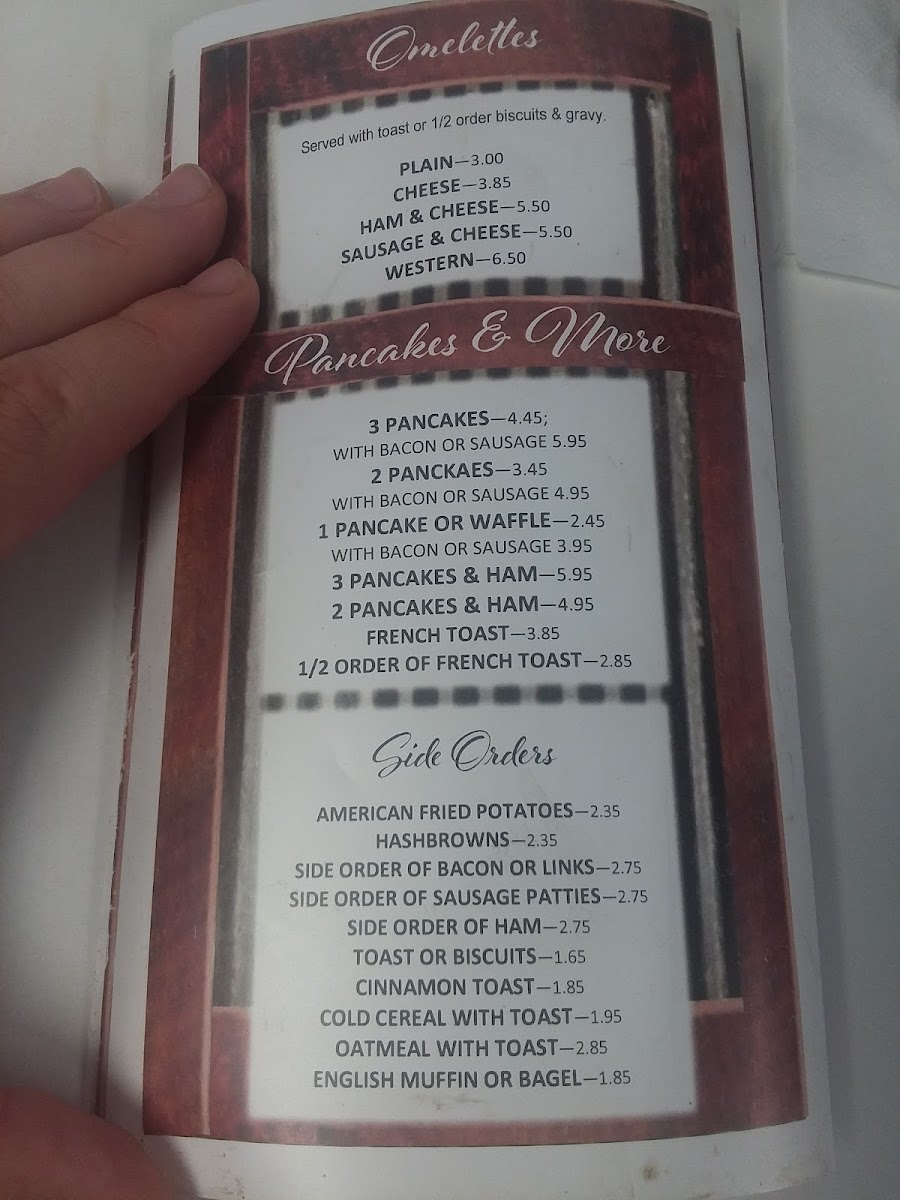 Omelettes
Served with toast or 1/2 order biscuits & gravy.
PLAIN—3.00
CHEESE—3.85
HAM & CHEESE—5.50
SAUSAGE & CHEESE—5.50
WESTERN—6.50
Pancakes & More
3 PANCAKES—4.45;
WITH BACON OR SAUSAGE 5.95
2 PANCKAES—3.45
WITH BACON OR SAUSAGE 4.95
1 PANCAKE OR WAFFLE—2.45
WITH BACON OR SAUSAGE 3.95
3 PANCAKES & HAM—5.95
2 PANCAKES & HAM—4.95
FRENCH TOAST—3.85
1/2 ORDER OF FRENCH TOAST—2.85
Side Orders
AMERICAN FRIED POTATOES—2.35
HASHBROWNS—2.35
SIDE ORDER OF BACON OR LINKS—2.75
SIDE ORDER OF SAUSAGE PATTIES—2.75
SIDE ORDER OF HAM—2.75
TOAST OR BISCUITS—1.65
CINNAMON TOAST—1.85
COLD CEREAL WITH TOAST—1.95
OATMEAL WITH TOAST—2.85
ENGLISH MUFFIN OR BAGEL—1.85